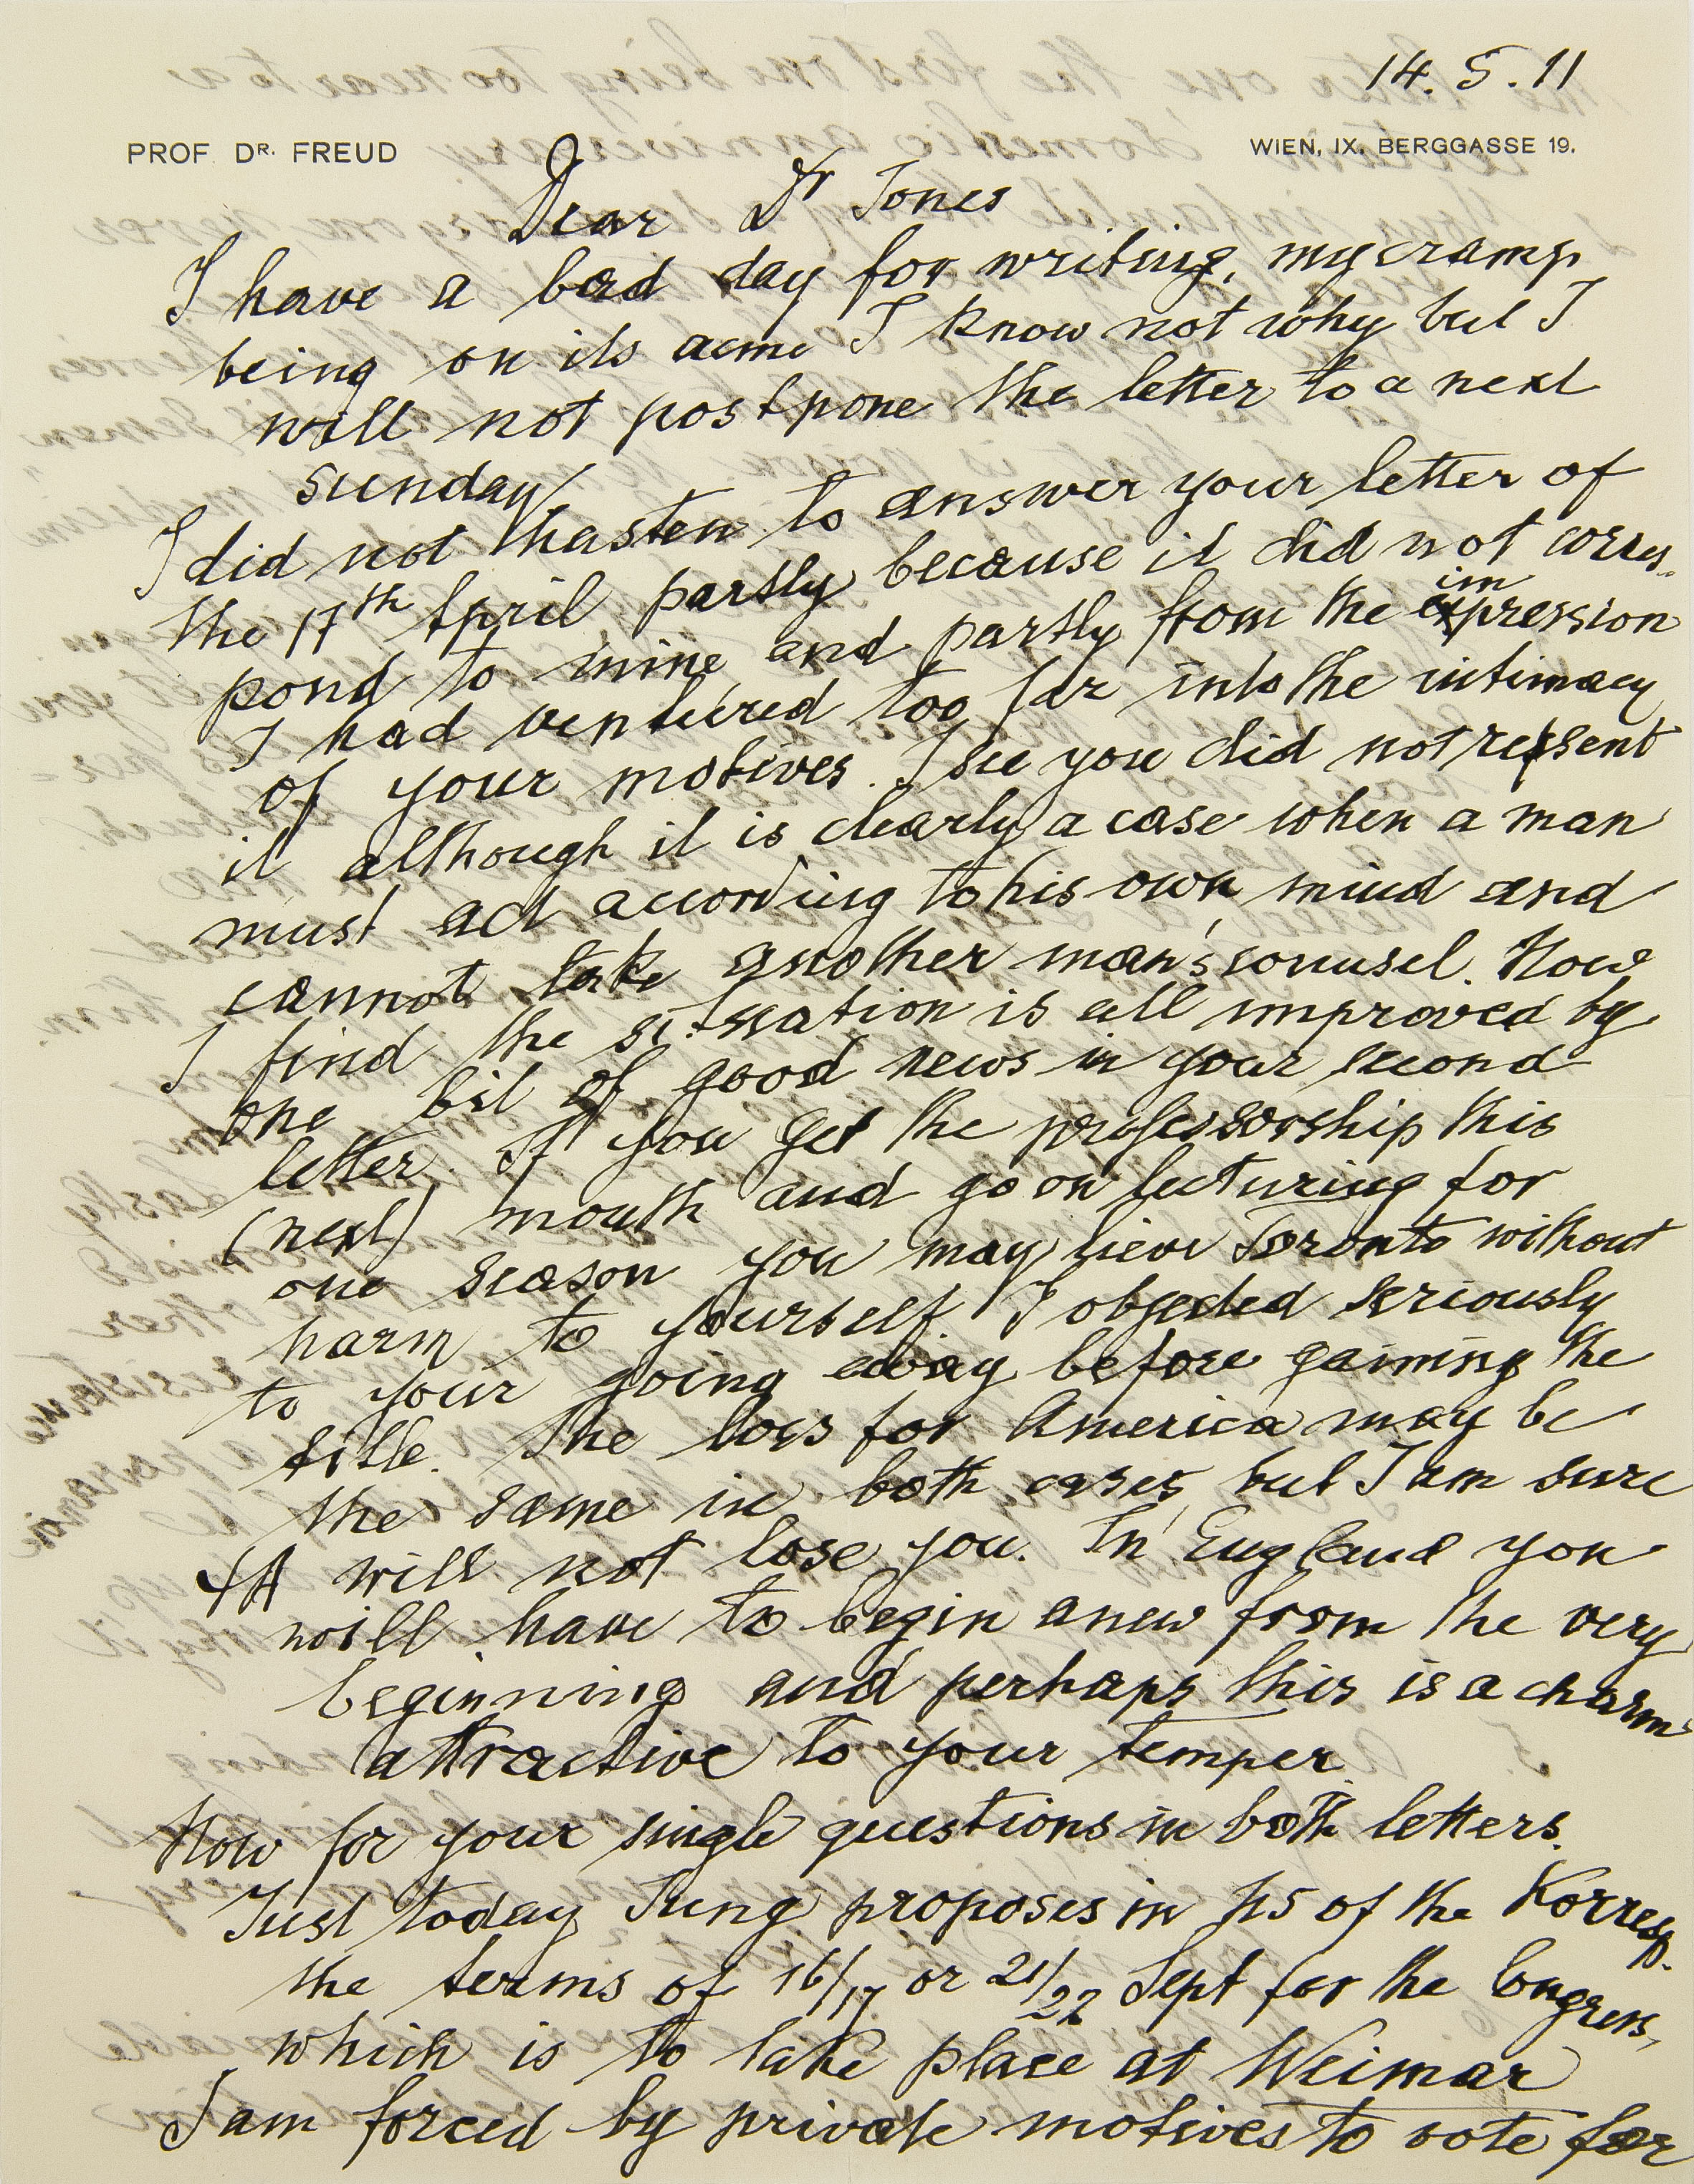 14. 5. 11
PROF. DR. FREUD
WIEN, IX. BERGGASSE 19.
Dear Dr Jones
I have a bad day for writing, my cramp
being on its acme I know not why but I
will not postpone the letter to a next
sunday.
I did not hasten to answer your letter of
the 17th April partly because it did not corres-
pond to mine and partly from the impression
I had ventured too far into the intimacy
of your motives. I see you did not resent
it although it is clearly a case when a man
must act according to his own mind and
cannot take another man's counsel. Now
I find the situation is all improved by
one bit of good news in your second
letter. If you get the professorship this
(next) month and go on lecturing for
one season you may leave Toronto without
harm to yourself. I objected seriously
to your going away before gaining the
title. The loss for America may be
the same in both cases, but I am sure
ΨA will not lose you. In England you
will have to begin anew from the very
beginning and perhaps this is a charm
attractive to your temper.
Now for your single questions in both letters.
Just today Jung proposes in N5 of the Korresp.
the terms of 16/17 or 21/22 Sept for the Congress,
which is to take place at Weimar
I am forced by private motives to vote for
resistance
paranoic